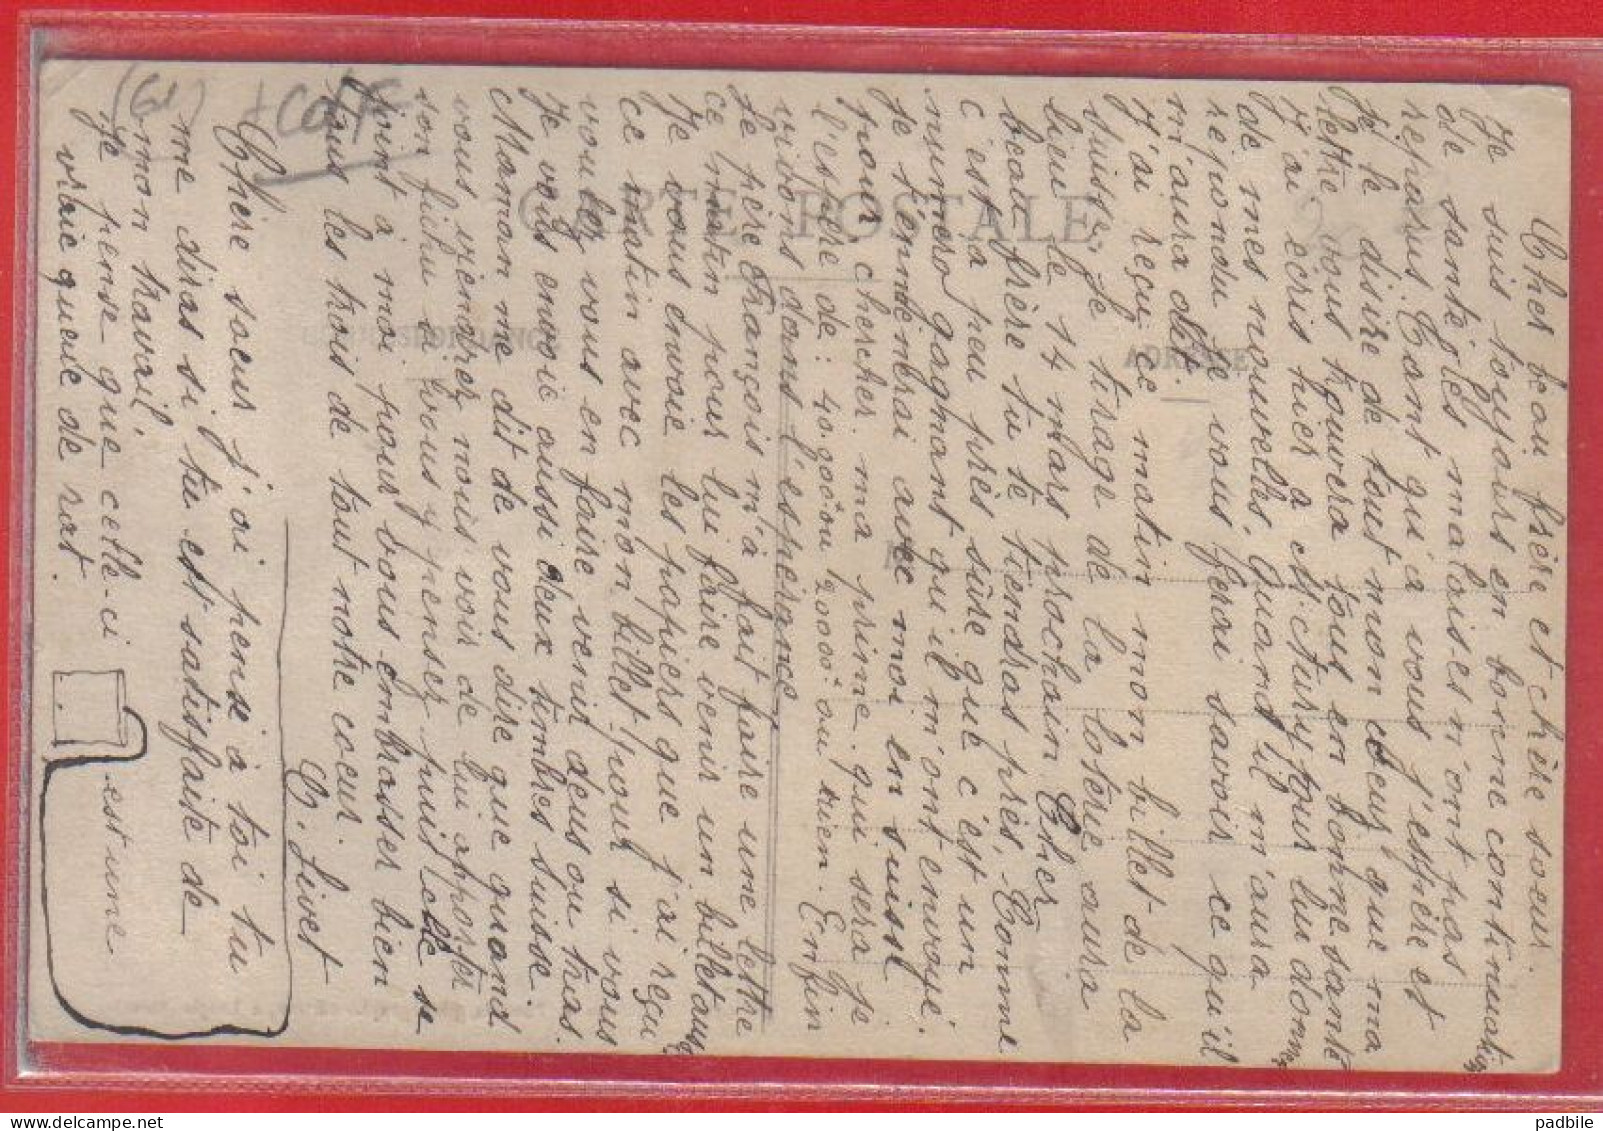 Cher beau frère et chère soeur.
Je suis toujours en bonne continuation
de santé, les malaises n'ont pas
reparus. Tant qu'a vous j'espère et
Je le désire de tout mon coeur que ma
lettre vous trouvera tous en bonne santé
J'ai écris hier à M. pour lui donner
de mes nouvelles. Quand il m'aura
repondu je vous ferai savoir ce qu'il
m'aura dit.
J'ai reçu ce matin mon billet de la
suisse, le tirage de la loterie aura
lieu le 14 mars prochain Cher
beau frère tu te tiendras près, Comme
c'est a peu près sûre que c'est un
numero gagnant qu'il m'ont envoyé.
Je t'enmènerai avec moi en suisse
pour chercher ma prime. qui sera je
l'espère de: 40.000 ou 20000 ou rien. Enfin
vivons dans l'espérance
Le père François m'à fait faire une lettre
ce matin pour lui faire venir un billet aussi
Je vous envoie les papiers que j'ai reçu
ce matin avec mon billet pour si vous
voulez vous en faire venir deus ou trois.
Je vois envoie aussi deux timbres suisse.
Maman me dit de vous dire que quand
vous viendrez nous voir de lui apporter
son fichu si vous y pensez puis elle se
joint à moi pour vous embrasser bien
tous les trois de tout notre coeur.
C. Livet
Chère soeur j'ai pensé à toi tu
me diras si tu est satisfaite de
mon travail.
Je pense que celle-ci est une
vraie queule de rat.
CARTE POSTALE
CORRESPONDANCE
ADRESSE
(61)
padbile - delcampe.net